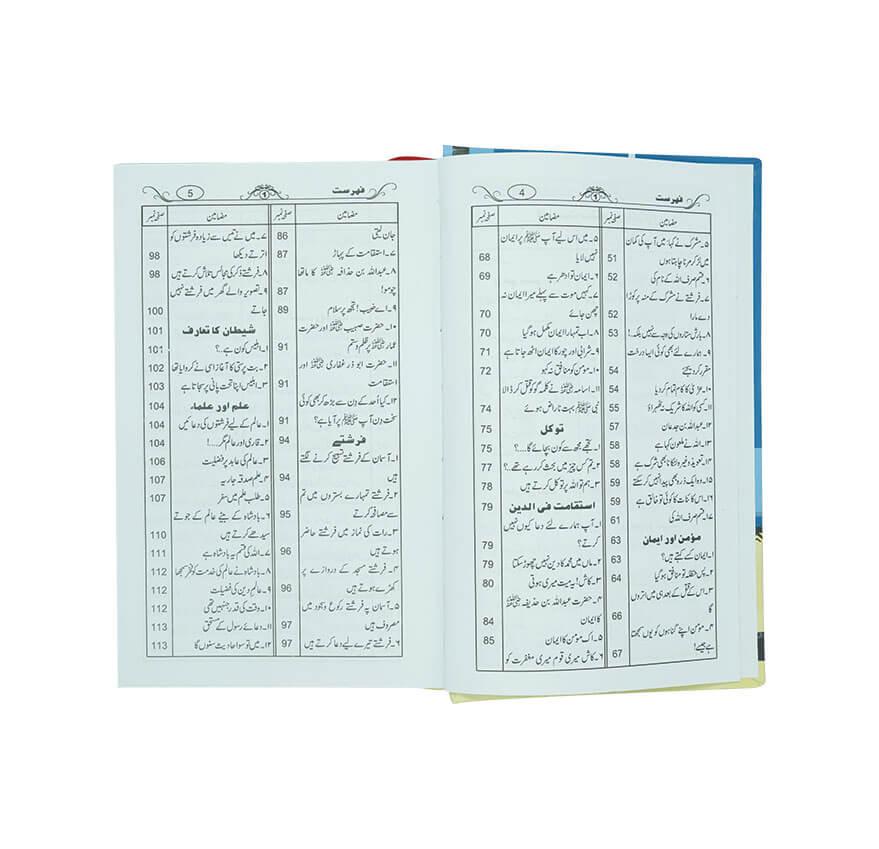 فہرست
1
4
مضامین صفحہ نمبر
۵۔ مشرک نے کہا: میں آپ کی کمان
میں لڑ کر مرنا چاہتا ہوں 51
۶۔ قسم صرف اللہ کے نام کی 52
۷۔ فرشتے نے مشرک کے منہ پر کوڑا
دے مارا 52
۸۔ بارش ستاروں کی وجہ سے نہیں بلکہ! 53
۹۔ ہمارے لئے بھی کوئی ایسا درخت
مقرر کر دیجئے 54
۱۰۔ عزیٰ کا کام تمام کر دیا 54
۱۱۔ کسی کو اللہ کا شریک نہ ٹھہراؤ 55
۱۲۔ عبداللہ بن جدعان 57
۱۳۔ اللہ نے ملعون کہا ہے 58
۱۴۔ تعویذ وغیرہ لٹکانا بھی شرک ہے 58
۱۵۔ وہ ایک ذرہ بھی پیدا نہیں کر سکتے 59
۱۶۔ اس کائنات کا کوئی تو خالق ہے 59
۱۷۔ قسم صرف اللہ کی 61
مؤمن اور ایمان 63
۱۔ ایمان کسے کہتے ہیں؟ 63
۲۔ پس حنظلہ تو منافق ہو گیا 64
۳۔ اس کے قتل کے بعد ہی میں اتروں
گا 66
۴۔ مؤمن اپنے گناہوں کو یوں سمجھتا
ہے جیسے! 67
مضامین صفحہ نمبر
۵۔ میں اس لیے آپ ﷺ پر ایمان
نہیں لایا 68
۶۔ ایمان تو ادھر ہے 69
۷۔ کہیں موت سے پہلے میرا ایمان نہ
چھن جائے 70
۸۔ اب تمہارا ایمان مکمل ہو گیا 70
۹۔ شرابی اور چور کا ایمان اٹھ جاتا ہے 71
۱۰۔ مؤمن کو منافق نہ کہو 72
۱۱۔ اسامہ نے کلمہ گو کو قتل کر ڈالا
نبی ﷺ بہت ناراض ہوئے 74
توکل 75
۱۔ تجھے مجھ سے کون بچائے گا....؟ 75
۲۔ تم کس چیز میں بحث کر رہے تھے..؟ 77
۳۔ ہم تو اللہ پر توکل کرتے ہیں 78
استقامت فی الدین 79
۱۔ آپ ہمارے لئے دعا کیوں نہیں
کرتے؟ 79
۲۔ ماں میں محمد کا دین نہیں چھوڑ سکتا 79
۳۔ کاش! یہ میت میری ہوتی 80
۴۔ حضرت عبداللہ بن حذیفہ
کا ایمان 84
۵۔ اک مؤمن کا ایمان 85
۶۔ کاش میری قوم میری مغفرت کو
فہرست
1
5
مضامین صفحہ نمبر
جان لیتی 86
۷۔ استقامت کے پہاڑ 87
۸۔ عبداللہ بن حذافہ کا ماتھا
چومو! 87
۹۔ اے خبیب! تجھ پر سلام 89
۱۰۔ حضرت صہیب اور حضرت
عمار پر ظلم و ستم 91
۱۱۔ حضرت ابوذر غفاری اور
استقامت 91
۱۲۔ کیا اُحد کے دن سے بڑھ کر بھی کوئی
سخت دن آپ ﷺ پر آیا ہے؟ 91
فرشتے 94
۱۔ آسمان کے فرشتے تسبیح کرنے لگتے
ہیں 94
۲۔ فرشتے تمہارے بستروں میں تم
سے مصافحہ کرتے 95
۳۔ رات کی نماز میں فرشتے حاضر
ہوتے ہیں 96
۴۔ فرشتے مسجد کے دروازے پر
کھڑے ہوتے ہیں 96
۵۔ آسمان پہ فرشتے رکوع و سجود میں
مصروف ہیں 97
۶۔ فرشتے تیرے لیے دعا کرتے ہیں 97
مضامین صفحہ نمبر
۷۔ میں نے تیس سے زیادہ فرشتوں کو
اترتے دیکھا 98
۸۔ فرشتے ذکر کی مجالس تلاش کرتے ہیں 98
۹۔ تصویر والے گھر میں فرشتے نہیں
جاتے 100
شیطان کا تعارف 101
۱۔ ابلیس کون ہے..؟ 101
۲۔ بت پرستی کا آغاز اسی نے کروایا تھا 102
۳۔ ابلیس اپنا تخت پانی پر سجاتا ہے 103
علم اور علماء 104
۱۔ عالم کے لیے فرشتوں کی دعائیں 104
۲۔ قاری اور عالم مگر....! 104
۳۔ عالم کی عابد پر فضیلت 106
۴۔ علم صدقہ جاریہ 107
۵۔ طلب علم میں سفر 107
۶۔ بادشاہ کے بیٹے عالم کے جوتے
سیدھے کرتے ہیں 110
۷۔ اللہ کی قسم یہ بادشاہ ہے 111
۸۔ بادشاہ نے عالم کی خدمت کو فخر سمجھا 112
۹۔ عالم دین کی فضیلت 112
۱۰۔ وقت کی قدر جنہیں تھی 112
۱۱۔ دعائے رسول کے مستحق 113
۱۲۔ میں تو سو احادیث سنوں گا 113